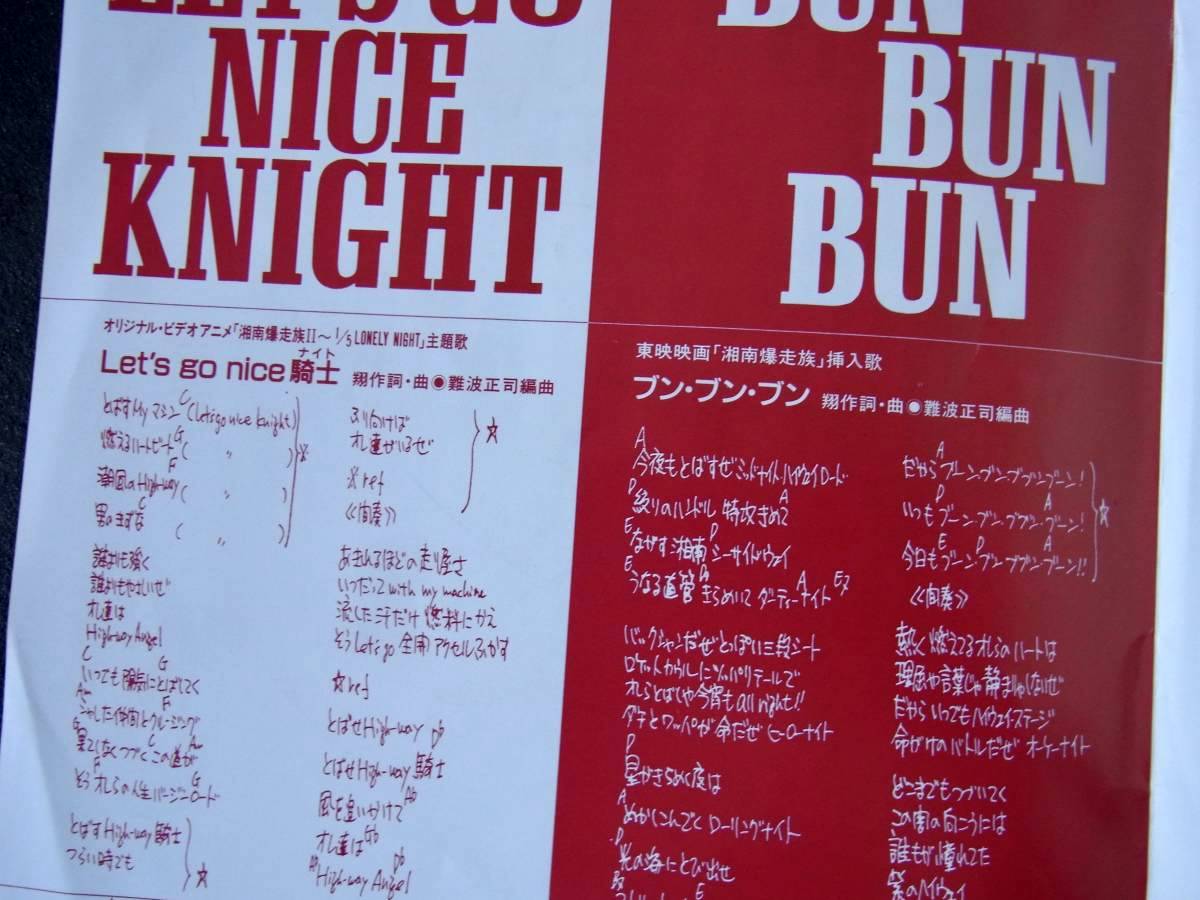 LET'S GO
NICE
KNIGHT
オリジナル・ビデオアニメ「湘南爆走族II〜 1/5 LONELY NIGHT」主題歌
ナイト
Let's go nice 騎士 翔作詞・曲◉難波正司編曲
C
とばすMyマシン (let's go nice knight)
G
燃えるハートビート ( 〃 )
F
潮風のHigh-way ( 〃 )
C
男のきずな ( 〃 )
※
誰よりも強く
誰よりもやさしいぜ
オレ達は
High-way Angel
C G
いつでも陽気にとばしてく
Am F
シャレた仲間とクルージング
G C Am
果てしなくつづくこの道が
F G
そうオレらの人生バージンロード
とばすHigh-way騎士
つらい時でも
☆
ふり向けば
オレ達がいるぜ
※ref
≪間奏≫
☆
あきれるほどの走り屋さ
いつだってwith my machine
流した汗だけ燃料にかえ
そうLet's go 全開アクセルふかす
☆ref
とばせHigh-way Db
とばせHigh-way騎士
風を追いかけて Ab
オレ達は Gb
Ab Db
High-way Angel
BUN
BUN
BUN
東映映画「湘南爆走族」挿入歌
ブン・ブン・ブン 翔作詞・曲◉難波正司編曲
A
今夜もとばすぜミッドナイト・ハイウェイロード
D A
絞りのハンドル 特攻きめて
E D
ながす湘南シーサイドウェイ
E A E7
うなる直管 きらめいて ダーティーナイト
バックシャンだぜとっぽい三段シート
オレらとばしゃ今宵も all right!!
ダチとワッパが命だぜ ヒーローナイト
D
星がきらめく夜は
A
めかしこんでく ローリングナイト
D
光の海にとび出せ
E
A
だからブーン、ブン・ブブンブーン!
D A
いつもブーン・ブン・ブブン・ブーン!
E D A
今日もブーン・ブン・ブブン・ブーン!!
☆
≪間奏≫
熱く燃えてるオレらのハートは
理屈や言葉じゃ静まりゃしないぜ
だからいつでもハイウェイ・ステージ
命がけのバトルだぜ オーケーナイト
どこまでもつづいてく
この闇の向こうには
誰もが憧れてた
紫のハイウェイ